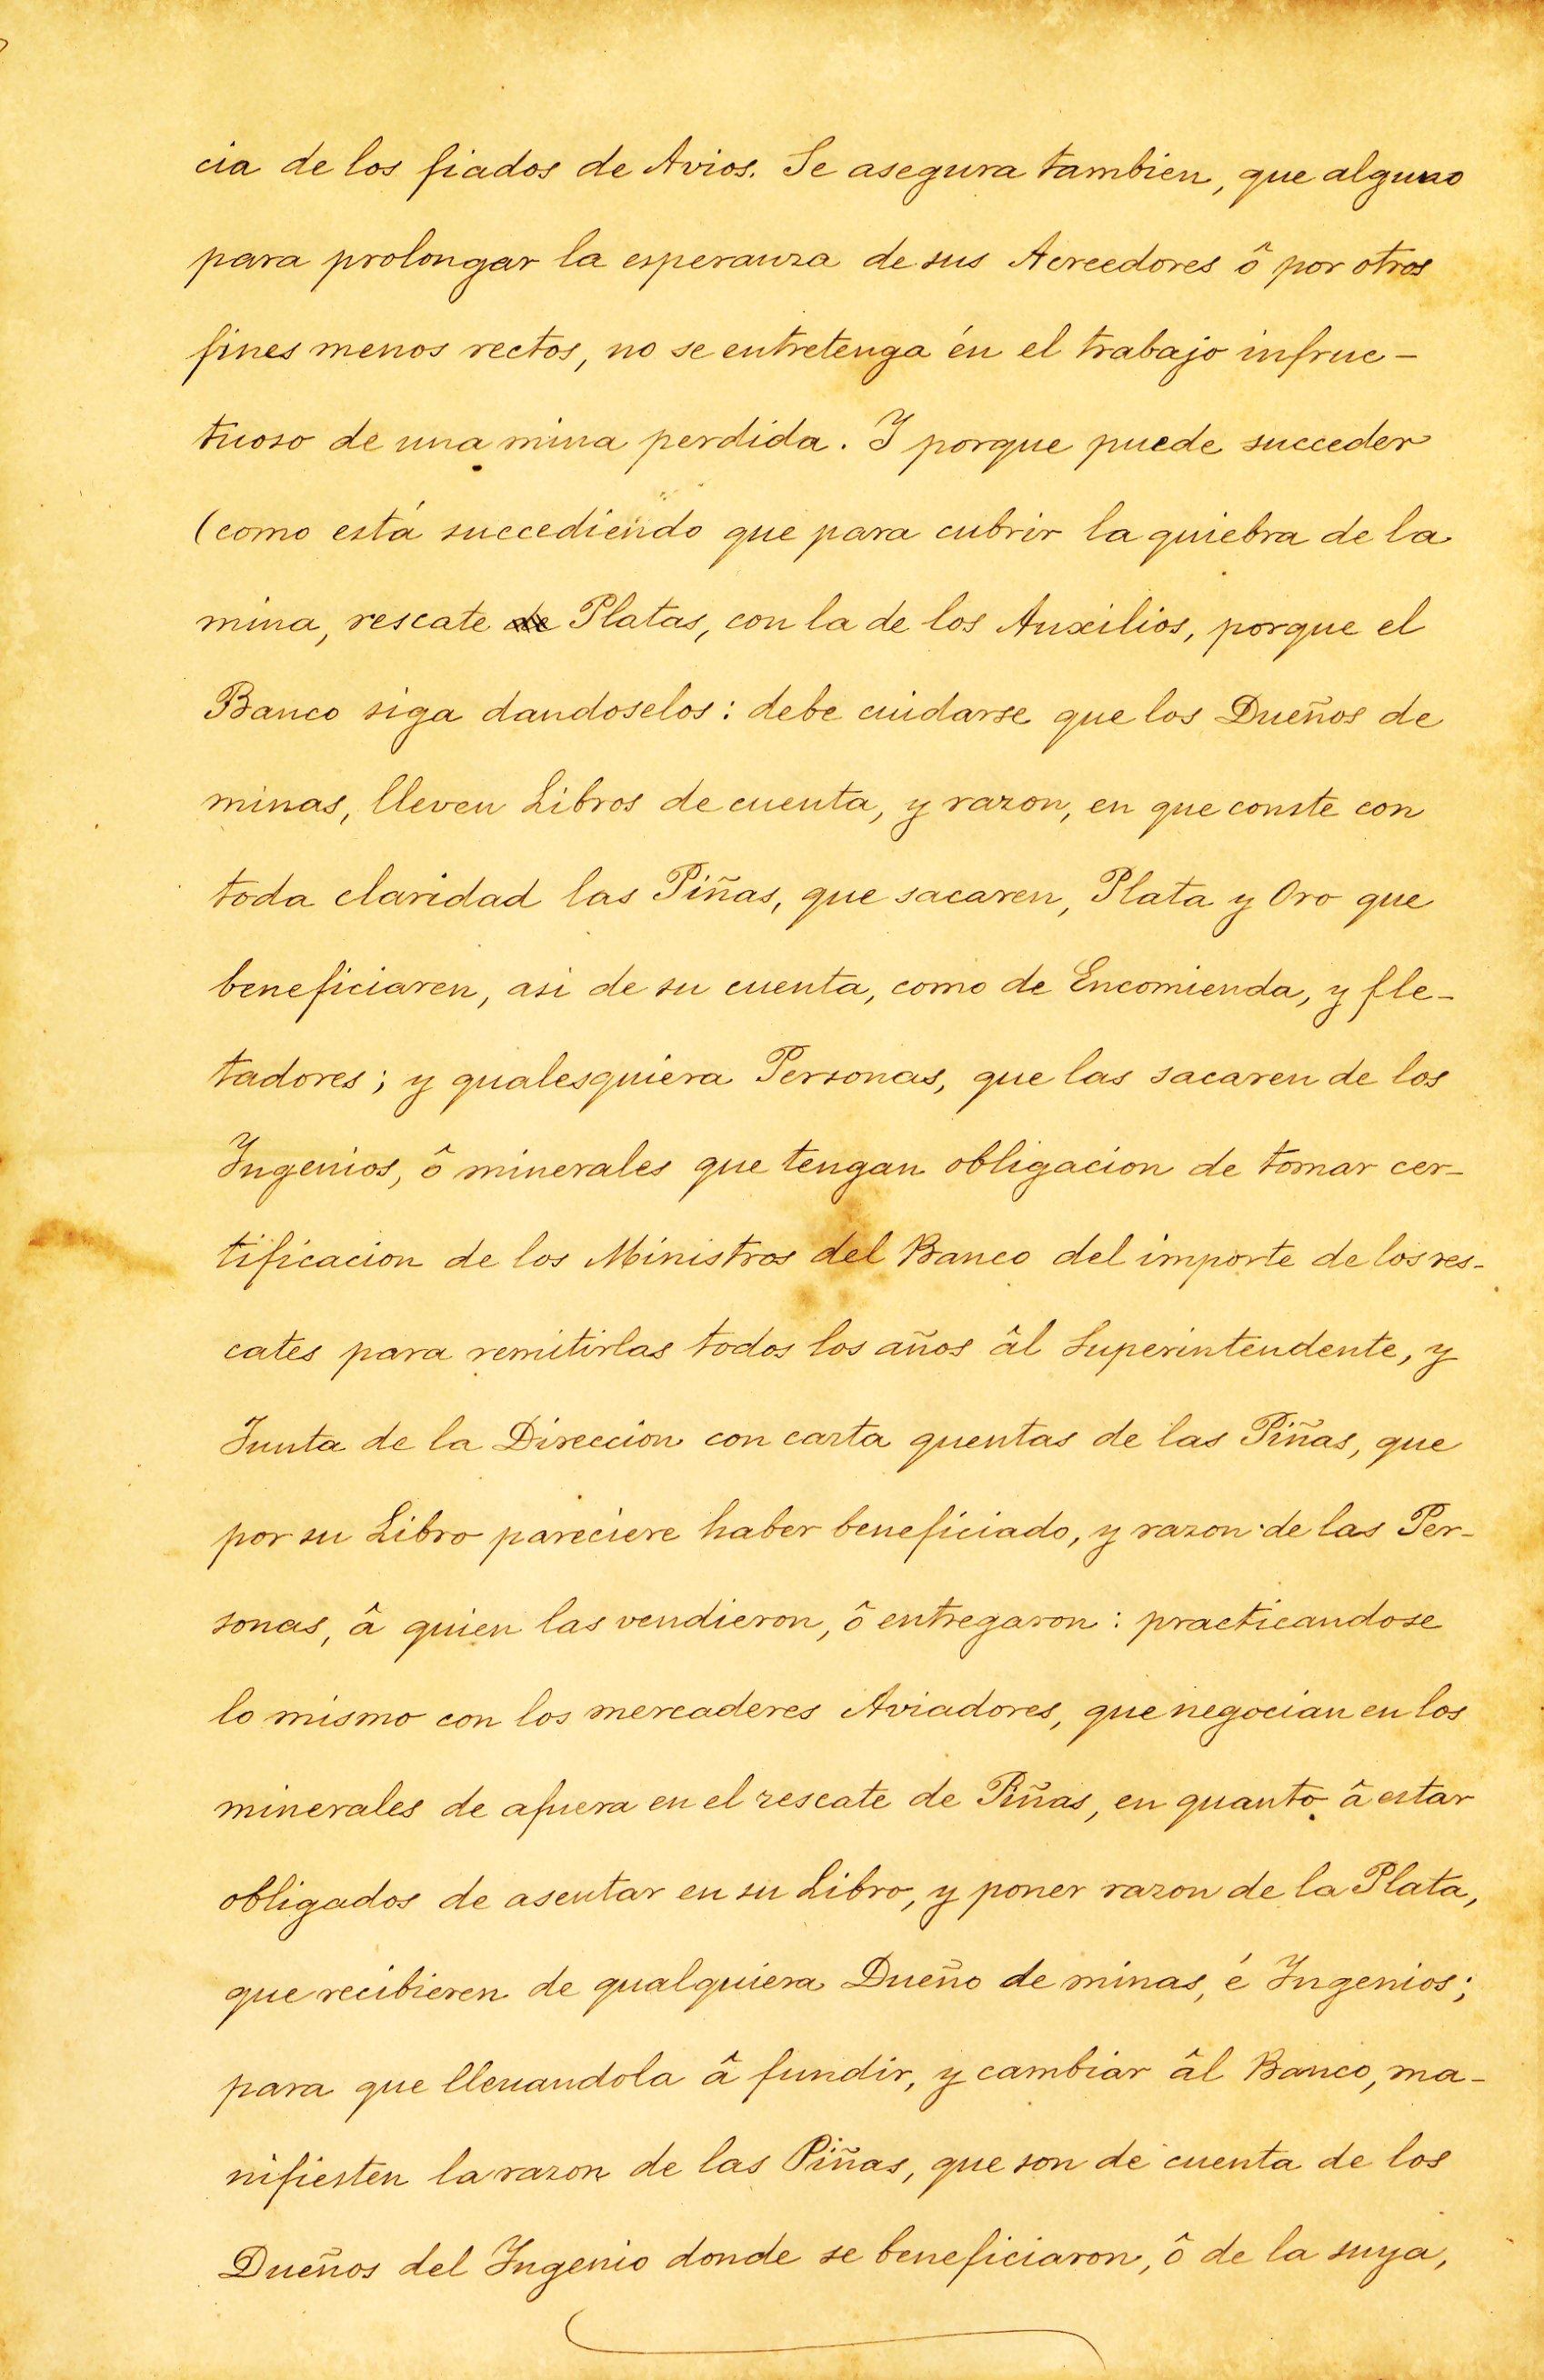 cia de los fiados de Avios. Se asegura tambien, que alguno
para prolongar la esperanza de sus Acreedores ô por otros
fines menos rectos, no se entretenga én el trabajo infruc-
tuoso de una mina perdida. Y porque puede succeder
(como está succediendo que para cubrir la quiebra de la
mina, rescate de Platas, con la de los Auxilios, porque el
Banco siga dandoselos: debe cuidarse que los Dueños de
minas, lleven Libros de cuenta, y razon, en que conste con
toda claridad las Piñas, que sacaren, Plata y Oro que
beneficiaren, asi de su cuenta, como de Encomienda, y fle-
tadores; y qualesquiera Personas, que las sacaren de los
Ingenios, ô minerales que tengan obligacion de tomar cer-
tificacion de los Ministros del Banco del importe de los res-
cates para remitirlas todos los años âl Superintendente, y
Junta de la Direccion con carta quentas de las Piñas, que
por su Libro pareciere haber beneficiado, y razon de las Per-
sonas, â quien las vendieron, ô entregaron: practicandose
lo mismo con los mercaderes Aviadores, que negocian en los
minerales de afuera en el rescate de Piñas, en quanto â estar
obligados de asentar en su Libro, y poner razon de la Plata,
que recibieren de qualquiera Dueño de minas, é Ingenios;
para que lleuandola â fundir, y cambiar âl Banco, ma-
nifiesten la razon de las Piñas, que son de cuenta de los
Dueños del Ingenio donde se beneficiaron, ô de la suya,